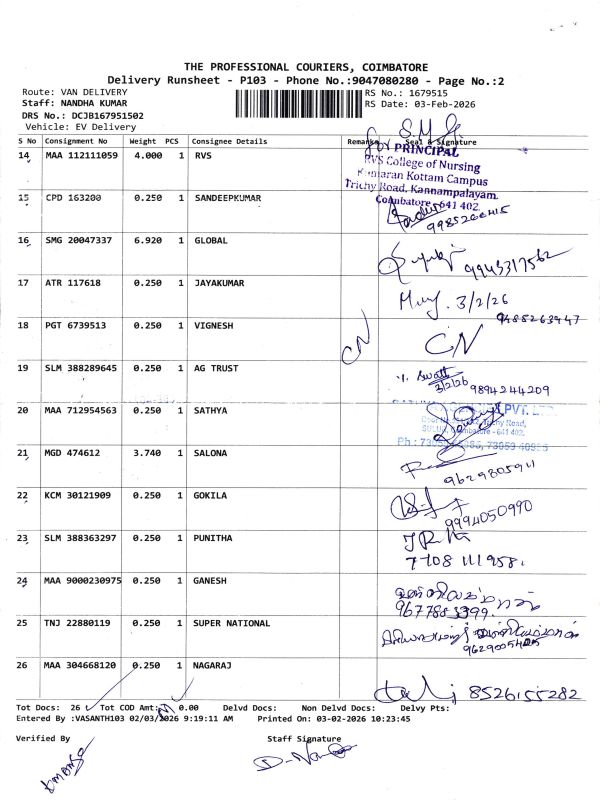 THE PROFESSIONAL COURIERS, COIMBATORE
Delivery Runsheet - P103 - Phone No.:9047080280 - Page No.:2
Route: VAN DELIVERY
RS No.: 1679515
Staff: NANDHA KUMAR
RS Date: 03-Feb-2026
DRS No.: DCJB167951502
Vehicle: EV Delivery
S No Consignment No Weight PCS Consignee Details Remarks Seal & Signature
for PRINCIPAL
14 MAA 112111059 4.000 1 RVS
RVS College of Nursing
Kumaran Kottam Campus
Trichy Road, Kannampalayam.
Coimbatore - 641 402.
15 CPD 163200 0.250 1 SANDEEPKUMAR
9985266415
16 SMG 20047337 6.920 1 GLOBAL
9943317562
17 ATR 117618 0.250 1 JAYAKUMAR
3/2/26
9488263947
18 PGT 6739513 0.250 1 VIGNESH
CN CN
19 SLM 388289645 0.250 1 AG TRUST
3/2/26 9894244209
20 MAA 712954563 0.250 1 SATHYA
PVT. LTD
Trichy Road,
Coimbatore - 641 402.
21 MGD 474612 3.740 1 SALONA
9629805911
22 KCM 30121909 0.250 1 GOKILA
9994050990
23 SLM 388363297 0.250 1 PUNITHA
7708 111958.
24 MAA 9000230975 1 GANESH
9677883399
25 TNJ 22880119 0.250 1 SUPER NATIONAL
26 MAA 304668120 0.250 1 NAGARAJ
8526155282
Tot Docs: 26 Tot COD Amt: 0.00 Delvd Docs: Non Delvd Docs: Delvy Pts:
Entered By :VASANTH103 02/03/2026 9:19:11 AM Printed On: 03-02-2026 10:23:45
Verified By Staff Signature